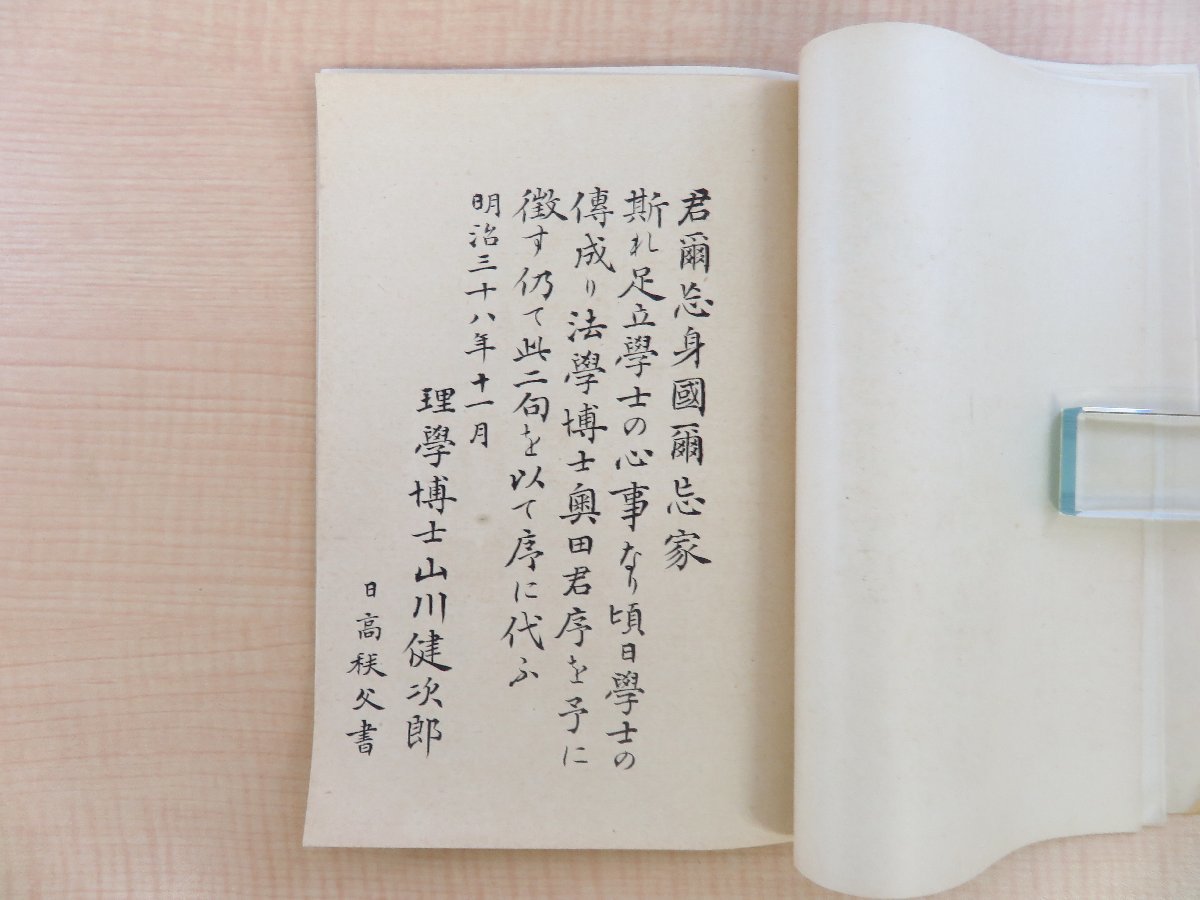 君爾忘身國爾忘家
斯れ足立學士の心事なり頃日學士の
傳成り法學博士奥田君序を予に
徴す仍て此二句を以て序に代ふ
明治三十八年十一月
理學博士山川健次郎
日高秩父書